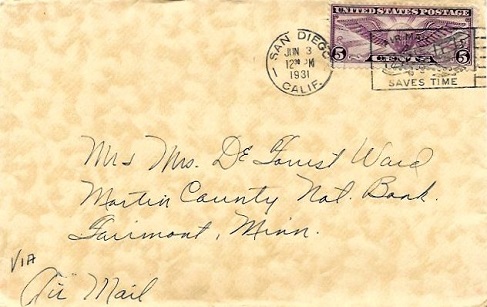 UNITED STATES POSTAGE
AIR MAIL
5 CENTS 5
SAN DIEGO
JUN 3
12 PM
1931
CALIF.
AIR MAIL
SAVES TIME
Mr & Mrs. De Forrest Ward
Martin County Nat. Bank.
Fairmont, Minn.
VIA
Air Mail